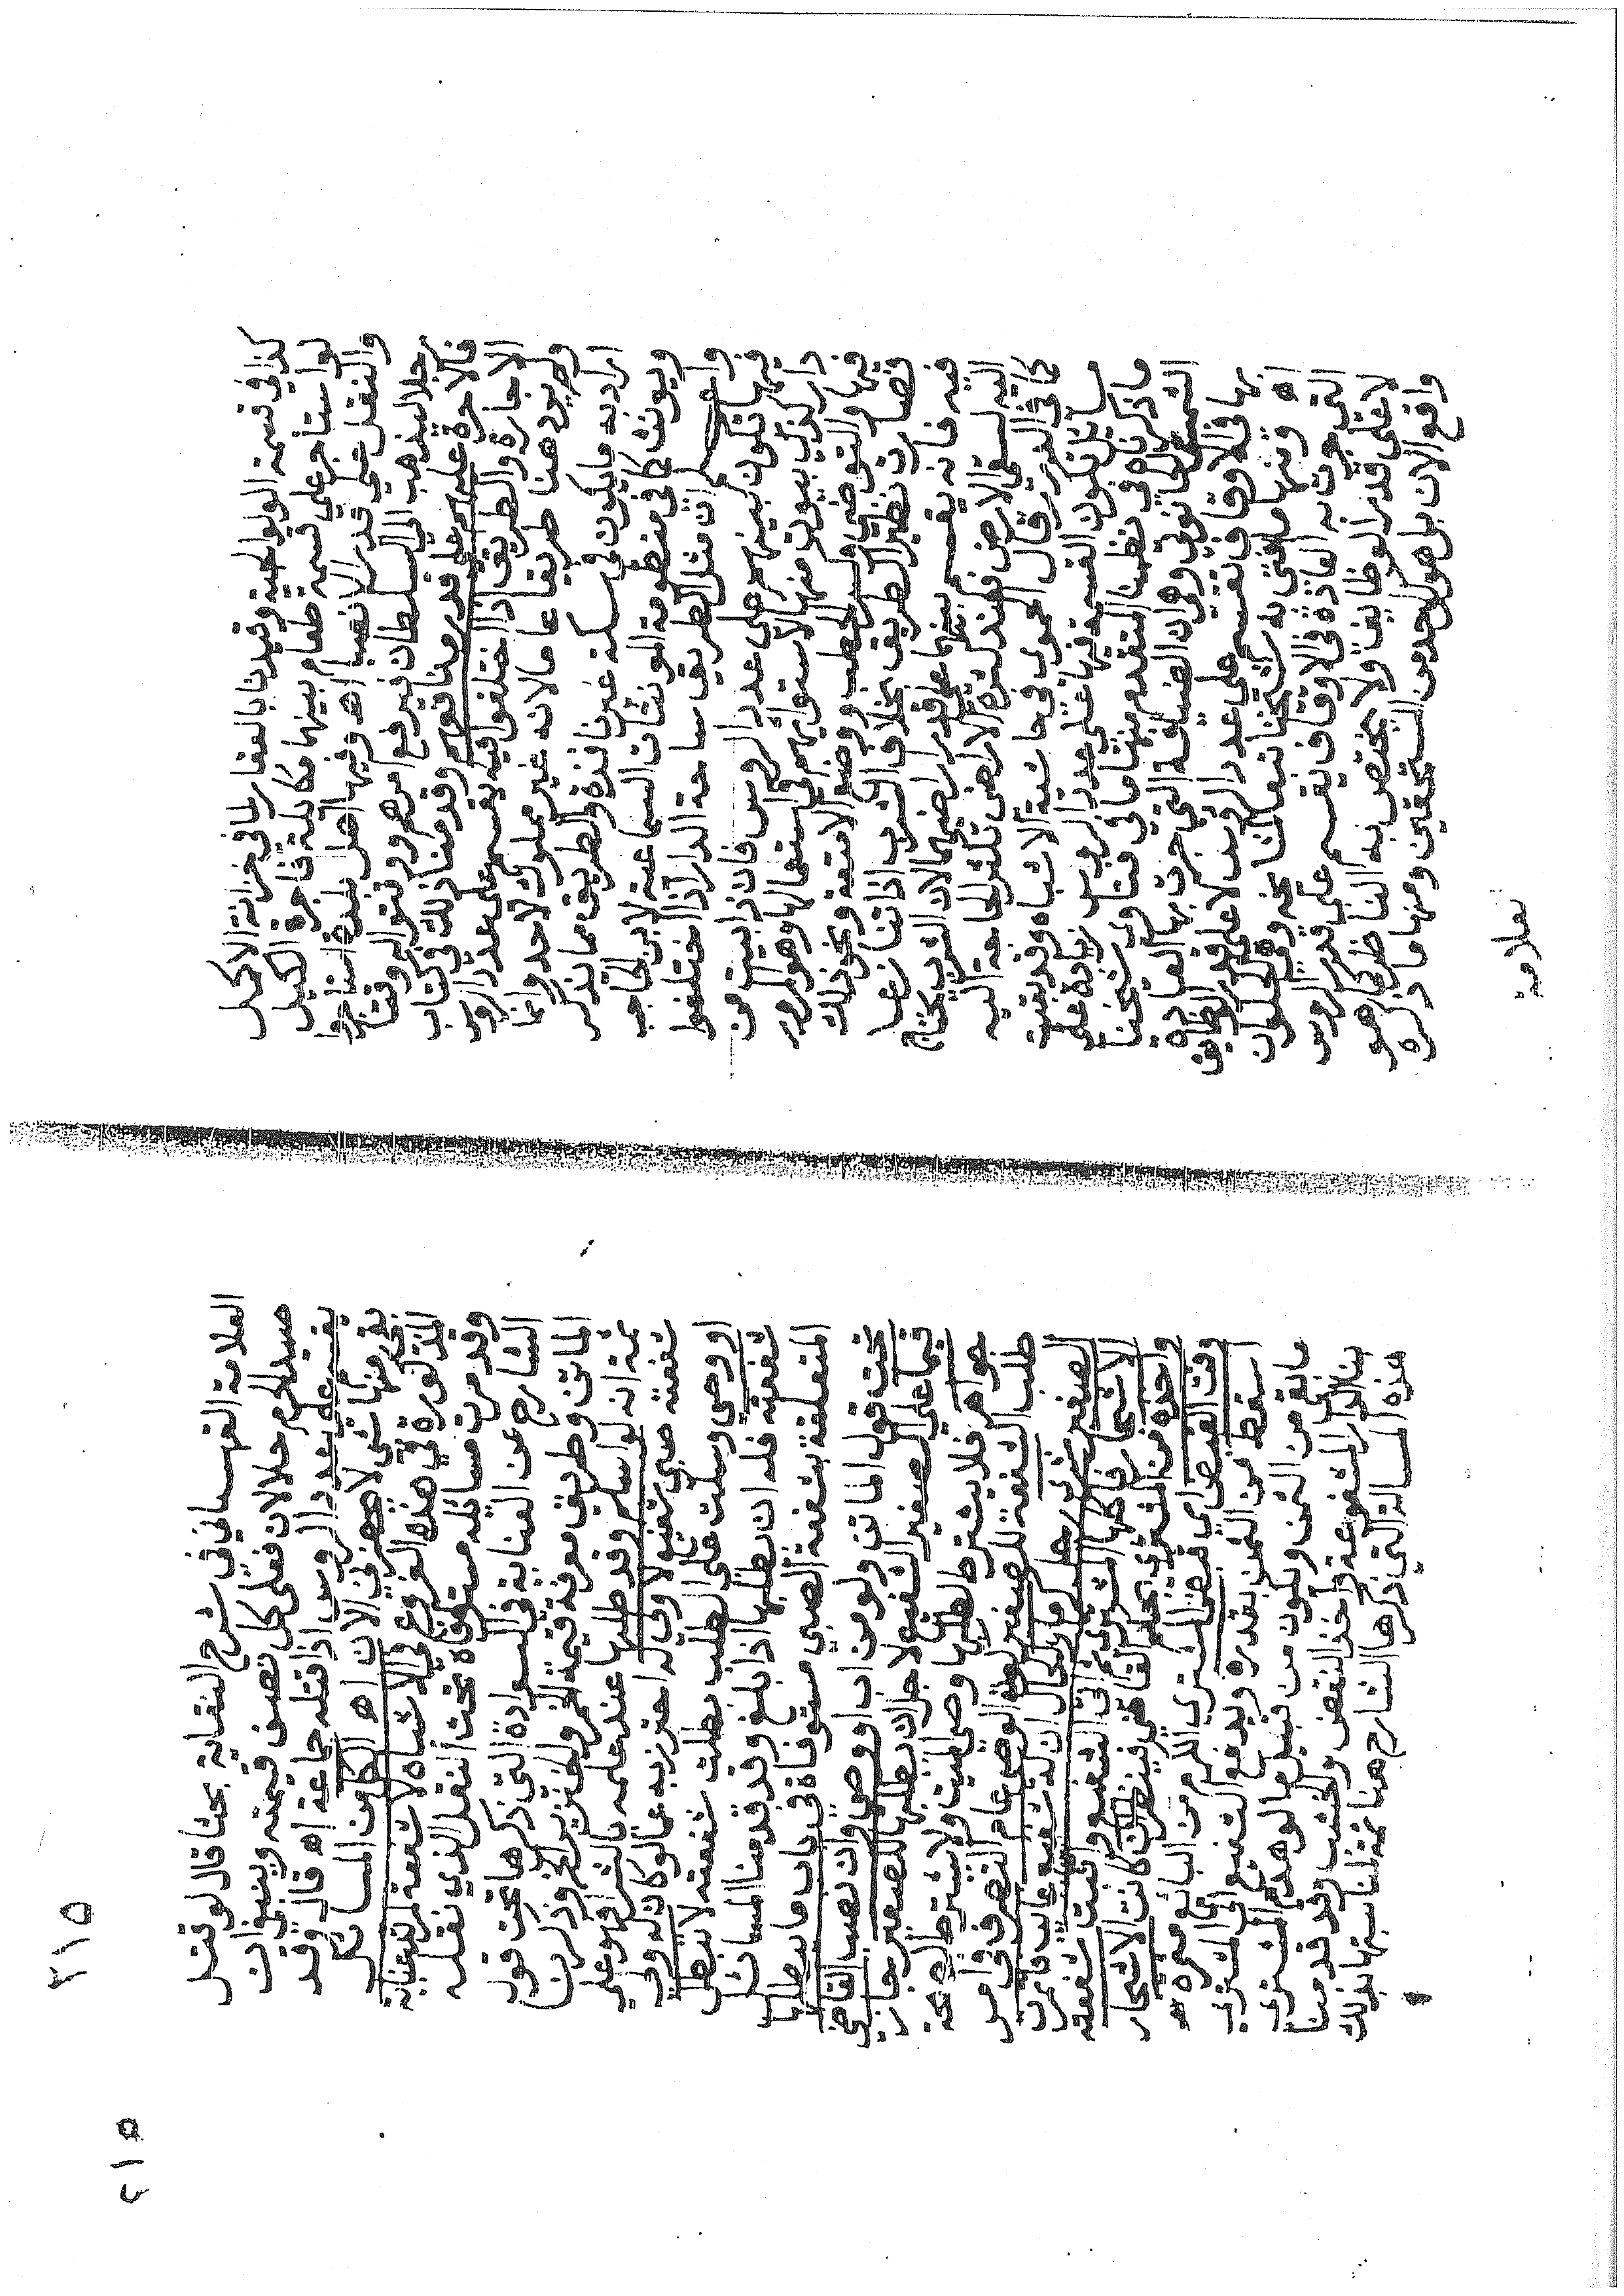 كذا في قسمة الولوالجية وقيدنا بالعقار لما في خزانة الاكمل
لو استأجر على قسمة طعام بينهما مكايلة فاجرة الكيل
والنقل على قدر الانصبا اه وفيها اهل بلدة استاجروا
رجلا ليذهب الى السلطان ليرفع امرهم ووقتوا له وقتا
فالاجرة عليهم على قدر منافعهم وقد مر ذلك في كتاب
الاجارة والطريق اذا اختلفوا فيه يقسم على عدد الروس
ولم يرد هنا طريقا عاما لانه غير مملوك لاحد وانما
اراد به ما يكون في سكة غير نافذة والطريق مما يذكر
ويونث كما في منظومة المونثات السماعية لابن الحاجب
واعلم ان مثل الطريق ساحة الدار اذا اختلفوا
فيها تكون بينهم على عدد الروس فان ذا بيت من
دار كذي بيوت منها لاستوائهم في استعمالها وهو المرور
فيها والتوضي وكسر الحطب ووضع الامتعة ونحو ذلك
فصارت نظير الطريق بخلاف الشرب اذا تنازعا
فيه فانه يقسم بينهما على قدر اراضيهما لان الشرب يحتاج
اليه لسقي الارض فعند كثرة الاراضي تكثر الحاجة اليه
كما في الدرر قال الحموي في حاشية الاشباه وقد بقيت
مسائل تكون القسمة فيها على عدد الروس زيادة على
ما ذكرناه في نظمنا المتقدم منها ما في فتاوى شيخنا
الشمس الحانوتي وهو ان الضيافة التي جرت بها العادة
بها في الاوقاف تقسم على عدد الروس لا على قدر الوظايف
اه ومنها ما افتى به شيخنا تبعا لمشايخه وهو الحلوان
التي جرت به العادة في الاوقاف يقسم على قدر الروس
لا على قدر الوظايف ولا يختص به الناظر كما هو
واقع الان بل هو كواحد من المستحقين ومنها ما ذكره
لعلامة
٣١٥
٢١٥
العلامة القهستاني في شرح النقاية بحثا قال لو قتل
صيد الحرم حلالان فعلى كل نصف قيمته وينبغي ان
يقسم على عدد الروس اذا قتله جماعة اه قال وقد
بقي منها شي لا يحضرني الان اه الثامن المسائل
المذكورة في هذه الفروع في الاشباه لا شفعة لمرتد عناية
وقد مرت مسائله مستوفاة تحت النقل الذي نقله
الشارح عن العناية في السوادة التي ذكرها تحت قول
الماتن وطريق معرفة قيمة الخمر والخنزير الخ وذكرنا
ثمة انه لو اسلم وقد طلبها عند علمه بالشرا فهو على
شفعته صبي شفيع لا ولي له احترز به عما لو كان له ولي
او وصي وسكت على الطلب بطلت شفعته لا تبطل
شفعته فله ان يطلبها اذا بلغ وقد قدمنا المسائل
المتعلقة بشفعة الصبي مستوفاة في باب ما يبطلها
تحت قول الماتن ولو من اب او وصي وان نصب القاضي
قيما على الصغير الشفيع لا جاز ان يطلبها للصغير جاز
جواهر فلا يشترط لطلبها وصي الميت ولا يشترط لصحة
طلب الشفعة للصغير لصحة الوصي عام التصرف في امر
الصغير شرى رجل كرما والحال ان له شفيع غايب فاثمرت
الاشجار فاكلها المشتري فاتى الشفيع واثبت شفعته
واخذه من المشتري بحكم القاضي فينظر ان كانت الاشجار
وقت القبض اي قبض المشتري الكرم من البائع مثمرة
اسقط من الثمن بقدره ويدفع الشفيع الى المشتري
ما بقي من الثمن ويكون من قبيل ما لو هدم المشتري
بنا الدار المشفوعة واخذ النقض والخشب وقد قدمنا
هذه المسالة التي ذكرها الشارح هنا ثمة لمناسبتها بذلك